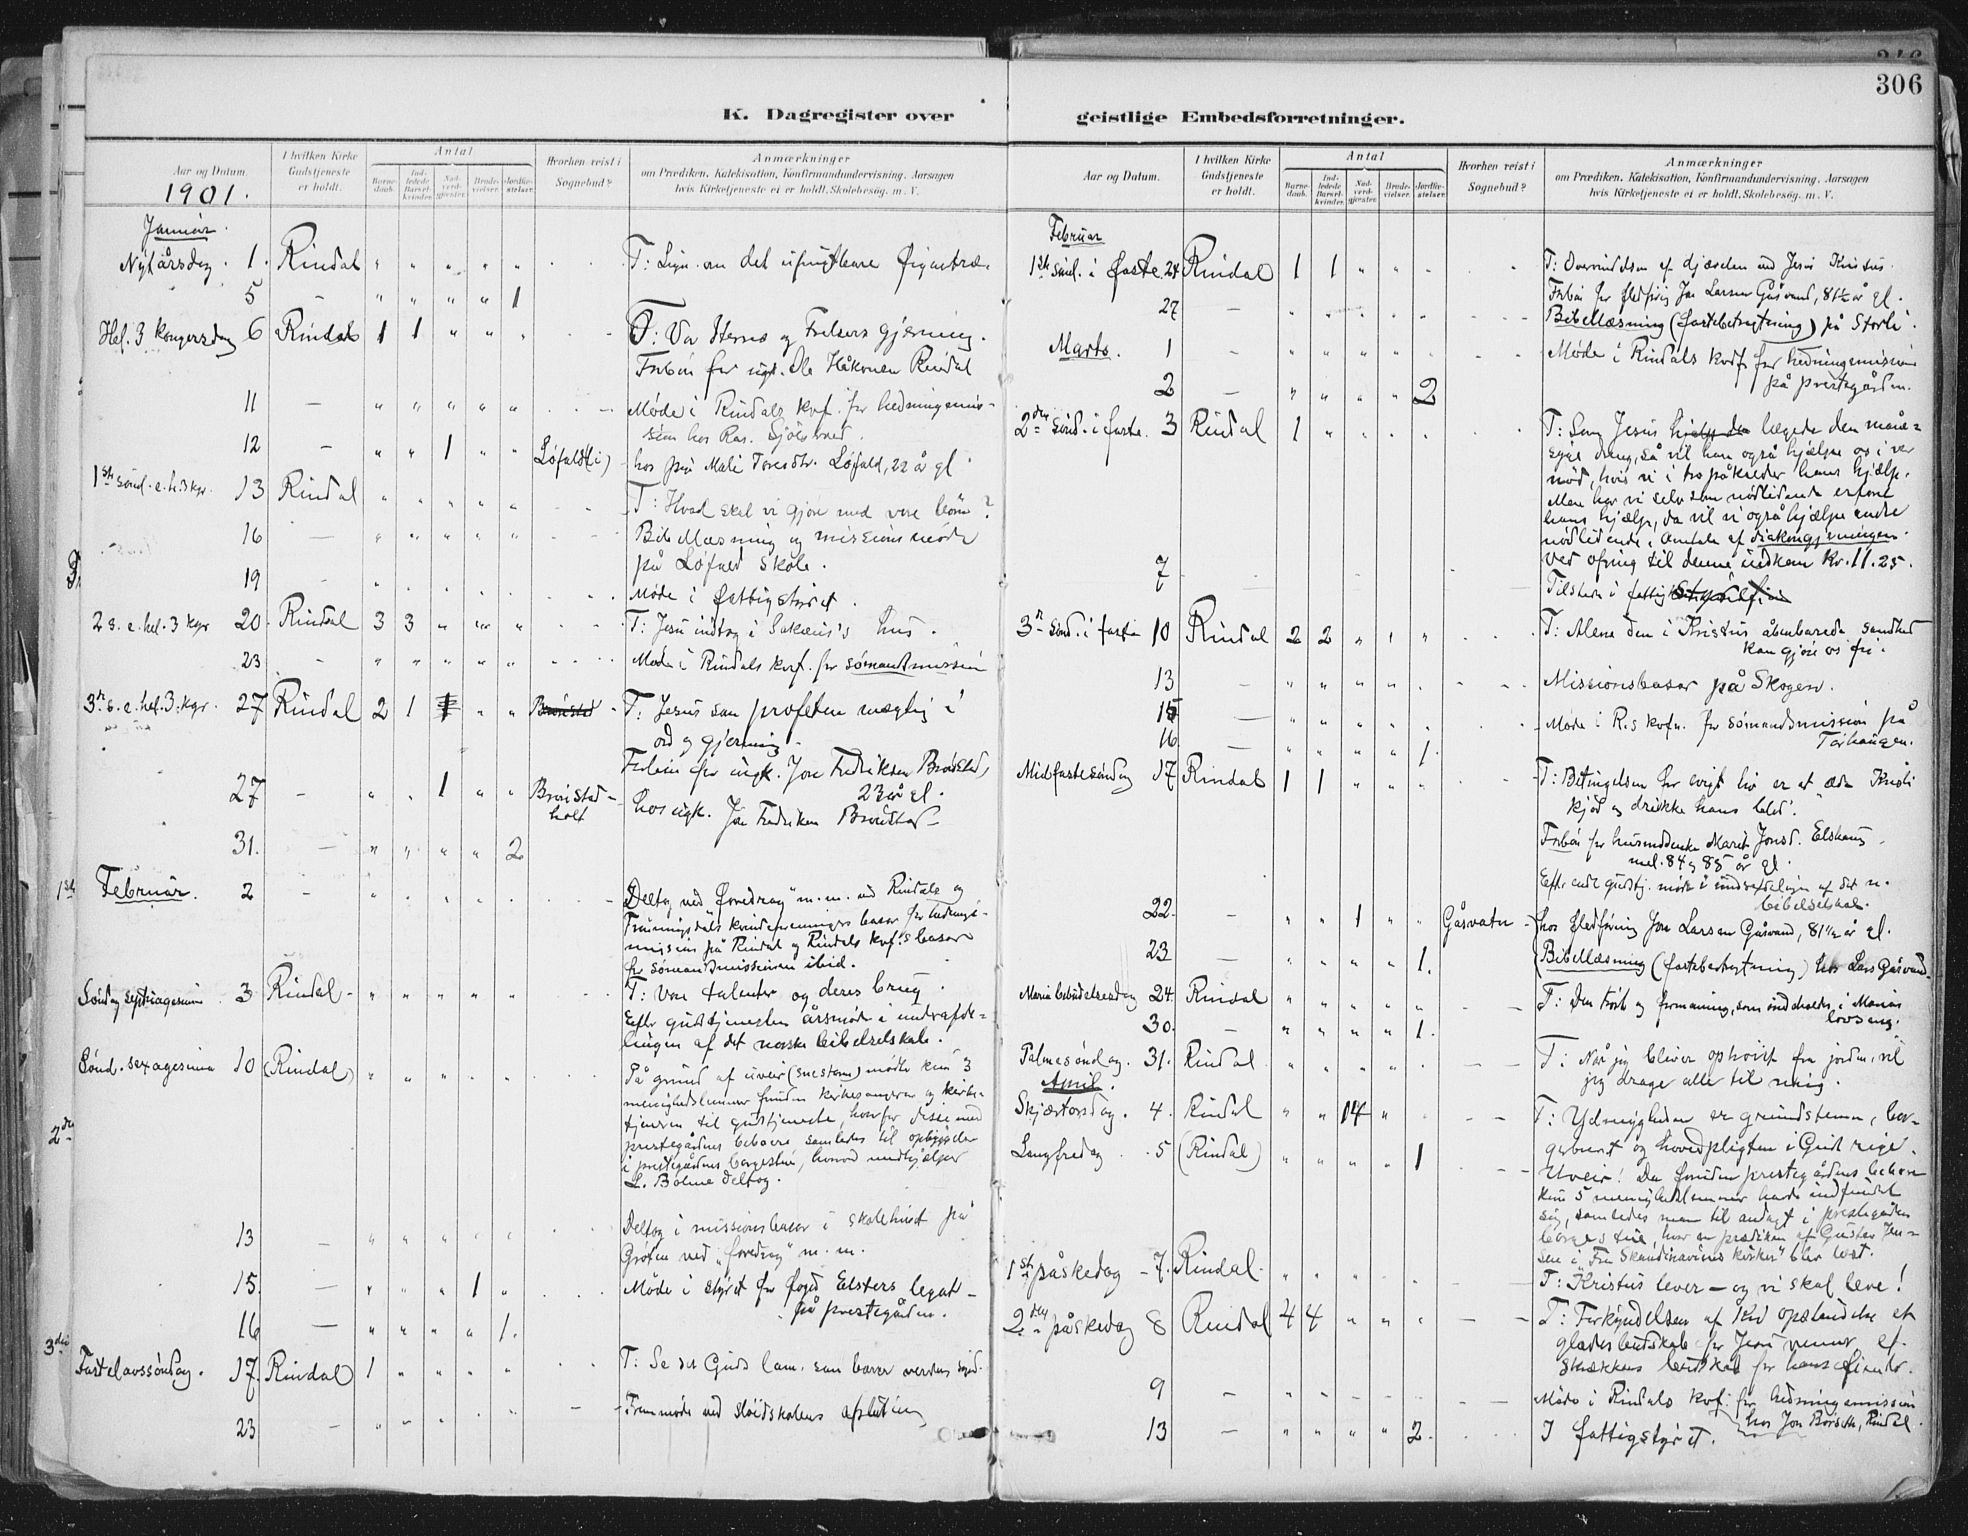 306
K. Dagregister over geistlige Embedsforretninger.
Aar og Datum.
1901.
I hvilken Kirke Gudstjeneste er holdt.
Antal
Barnedaab.
Indledede Barselkvinder.
Nadverdgjester.
Brudevielser.
Jordfæstelser.
Hvorhen reist i Sognebud?
Anmærkninger
om Prædiken, Katekisation, Konfirmandundervisning. Aarsagen
hvis Kirketjeneste ei er holdt, Skolebesøg. m. V.
Januar.
Nytårsdag. 1. Rindal " " " " " T: Lign. om det ufrugtbare figentræ.
5 - " " " " 1
Hel. 3 kongersdag 6 Rindal 1 1 " " " T: Vor Herres og Frelsers gjerning.
Forbøn for ugk. Ole Håkonsen Rindal
11 - " " " " " Møde i Rindals kvf. for hedningemis-
sion hos Ras.
12 - " " 1 " " Løfald(li) hos pige Mali Toresdtr. Løfald, 22 år gl.
1ste sønd. e. h. 3 kgr. 13 Rindal " " " " " T: Hvad skal vi gjøre med vore børn?
16 - " " " " " Bibellæsning og missionsmøde
på Løfald skole.
19 - " " " " " Møde i fattigstyret.
2 s. e. hel. 3 kgr 20 Rindal 3 3 " " " T: Jesu indtog i Sakæus's hus.
23 - " " " " " Møde i Rindals kvf. for sømandsmission
3die s. e. hel. 3. kgr. 27 Rindal 2 1 1 " " Brønstad T: Jesus som profeten mægtig i
ord og gjerning.
Forbøn for ungk. Jon Fredriksen Brønstad,
23 år gl.
27 - " " 1 " " Brønstad-
holt hos ugk. Jon Fredriksen Brønstad
31. - " " " " 2
1ste Februar. 2 - " " " " " Deltog ved "foredrag" m. m. ved Rindals og
kvindeforeningers basar for hednings-
mission på Rindal og Rindals kvf.'s basar
for sømandsmissionen ibid.
Søndag septuagesima 3 Rindal " " " " " T: Vore talenter og deres brug.
Efter gudstjenesten årsmøde i underafde-
lingen af det norske bibelselskab.
Sønd. sexagesima 10 (Rindal) " " " " " På grund af uveir (snestorm) mødte kun 3
menighedslemmer foruden kirkesangeren og kirke-
tjeneren til gudstjeneste, hvorfor disse med
prestegårdens beboere samledes til opbyggelse
i prestegårdens borgestue, hvorved medhjælper
L. Bolme deltog.
2den
13 - " " " " " Deltog i missionsbasar i skolehuset på
Grøten ved "foredrag" m. m.
15. - " " " 1 " Møde i styret for foged Elsters legat
på prestegården.
16 - " " " " 1.
3die
Fastelavssøndag. 17. Rindal 1 " " " " T: Se det Guds lam, som bærer verdens synd.
23 - " " " " " Fremmøde ved sløidskolens afslutning
Aar og Datum.
I hvilken Kirke Gudstjeneste er holdt.
Antal
Barnedaab.
Indledede Barselkvinder.
Nadverdgjester.
Brudevielser.
Jordfæstelser.
Hvorhen reist i Sognebud?
Anmærkninger
om Prædiken, Katekisation, Konfirmandundervisning. Aarsagen
hvis Kirketjeneste ei er holdt, Skolebesøg. m. V.
Februar
1ste sønd. i faste 24 Rindal 1 1 " " " T: Overvindelsen af djævelen ved Jesus Kristus.
Forbøn for fledføring Jon Larsen Gåsvand, 81½ år gl.
27 - " " " " " Bibellæsning (fastebetragtning) på Storli.
Marts. 1 - " " " " " Møde i Rindals kvdf. for hedningemission
på prestegården.
2 - " " " " 2
2den sønd. i faste. 3 Rindal 1 " " " " T: Som Jesus hjalp den lægede den måne-
syge dreng, så vil han også hjælpe os i vor
nød, hvis vi i tro påkalder hans hjælp.
Men har vi selv som nødlidende erfaret
hans hjælp, da vil vi også hjælpe andre
nødlidende. Omtale af diakongjerningen.
Ved ofring til denne indkom Kr. 11.25.
7 - Tilstede i fattigstyret
3die sønd. i faste 10 Rindal 2 2 " " " T: Alene den i Kristus åbenbarede sandhed
kan gjøre os fri.
13 - " " " " " Missionsbasar på Skogen.
15 - " " " " " Møde i R.s kvfn. for sømandsmission på
Torhaugen.
16. - " " " " 1.
Midfastesøndag 17 Rindal 1 1 " " " T: Betingelsen for evigt liv er at "æde Kristi
kjød og drikke hans blod".
Forbøn for husmdenke Marit Jonsd. Elshaug,
mel. 84 og 85 år gl.
Efter endt gudstj. møde i underafdelingen af det n.
bibelselskab.
22. - " " 1 " " Gåsvatn hos fledføring Jon Larsen Gåsvand, 81½ år gl.
23 - " " " " 1. Bibellæsning (fastebetragtning) hos Lars Gåsvand.
Maria bebudelsesdag 24. Rindal " " " " " T: Den trøst og formaning, som indeholdes i Marias
lovsang.
30. - " " " " 1.
Palmesøndag. 31. Rindal " " " " " T: Når jeg bliver ophøiet fra jorden, vil
jeg drage alle til mig.
April.
Skjærtorsdag. 4. Rindal " " 14 " " T: Ydmygheden er grundstenen, bor-
gerbrevet og hovedpligten i Guds rige.
Langfredag. 5 (Rindal) " " " " 1 Uveir! Da foruden prestegårdens beboere
kun 5 menighedslemmer havde indfundet
sig, samledes man til andagt i prestegårdens
borgestue, hvor en prædiken af Gustav Jen-
sen i "Fra Skandinaviens kirker" blev læst.
1ste påskedag 7. Rindal " " " " " T: Kristus lever – og vi skal leve!
2den påskedag 8 Rindal 4 4 " " " T: Forkyndelsen af Kristi opstandelse et
gladesbudskab for Jesu venner, et
skrækkens budskab for hans fiender.
9 - " " " " " Møde i Rindals kvf. for hedningemission
hos Jon Børseth, Rindal.
13 - " " " " 2. I fattigstyret.